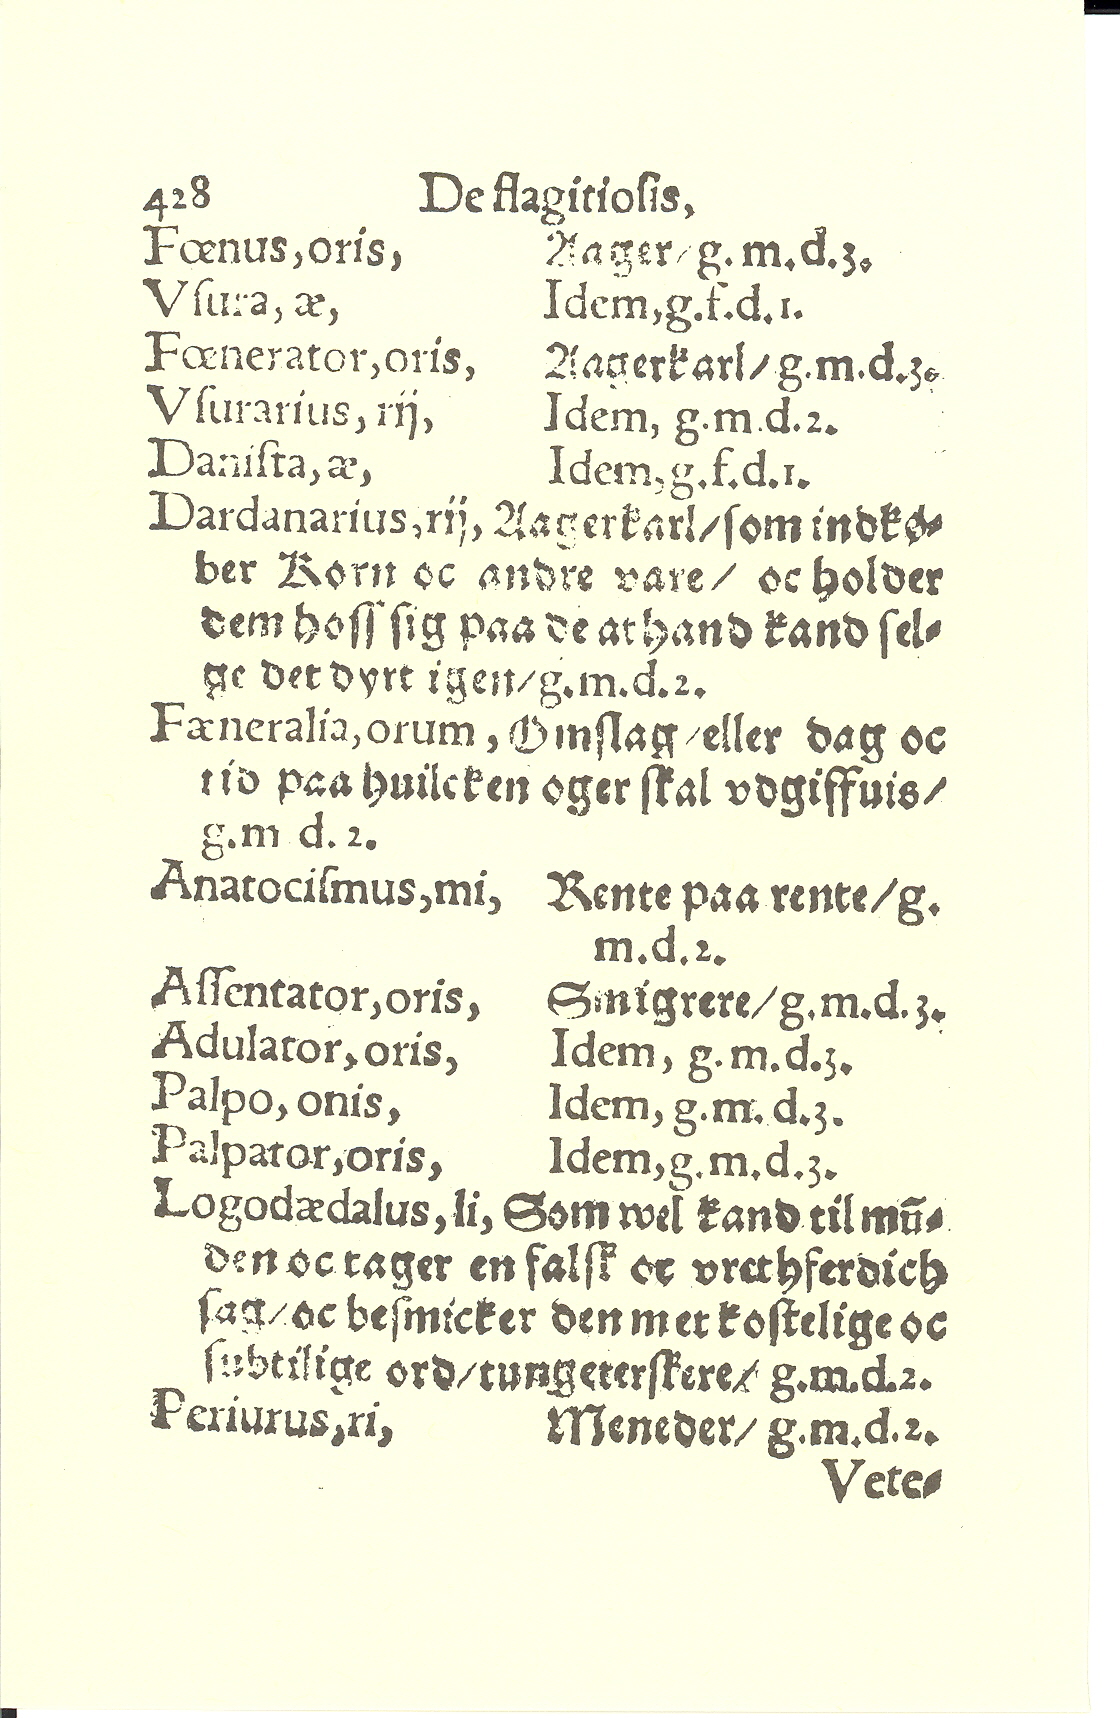 428 De flagitiosis,
Fœnus, oris, Aager/ g. m. d. 3.
Vsura, æ, Idem, g. f. d. 1.
Fœnerator, oris, Aagerkarl/ g. m. d. 3.
Vsurarius, rij, Idem, g. m. d. 2.
Danista, æ, Idem, g. f. d. 1.
Dardanarius, rij, Aagerkarl/ som indkø-
ber Korn oc andre vare/ oc holder
dem hoss sig paa de at hand kand sel-
ge det dyrt igen/ g. m. d. 2.
Fæneralia, orum, Omslag/ eller dag oc
tid paa huilcken oger skal vdgiffuis/
g. m d. 2.
Anatocismus, mi, Rente paa rente/ g.
m. d. 2.
Assentator, oris, Smigrere/ g. m. d. 3.
Adulator, oris, Idem, g. m. d. 3.
Palpo, onis, Idem, g. m. d. 3.
Palpator, oris, Idem, g. m. d. 3.
Logodædalus, li, Som wel kand til mū-
den oc tager en falsk oc vrethferdich
sag/ oc besmicker den met kostelige oc
subtilige ord/ tungeterskere/ g. m. d. 2.
Periurus, ri, Meneder/ g. m. d. 2.
Vete-